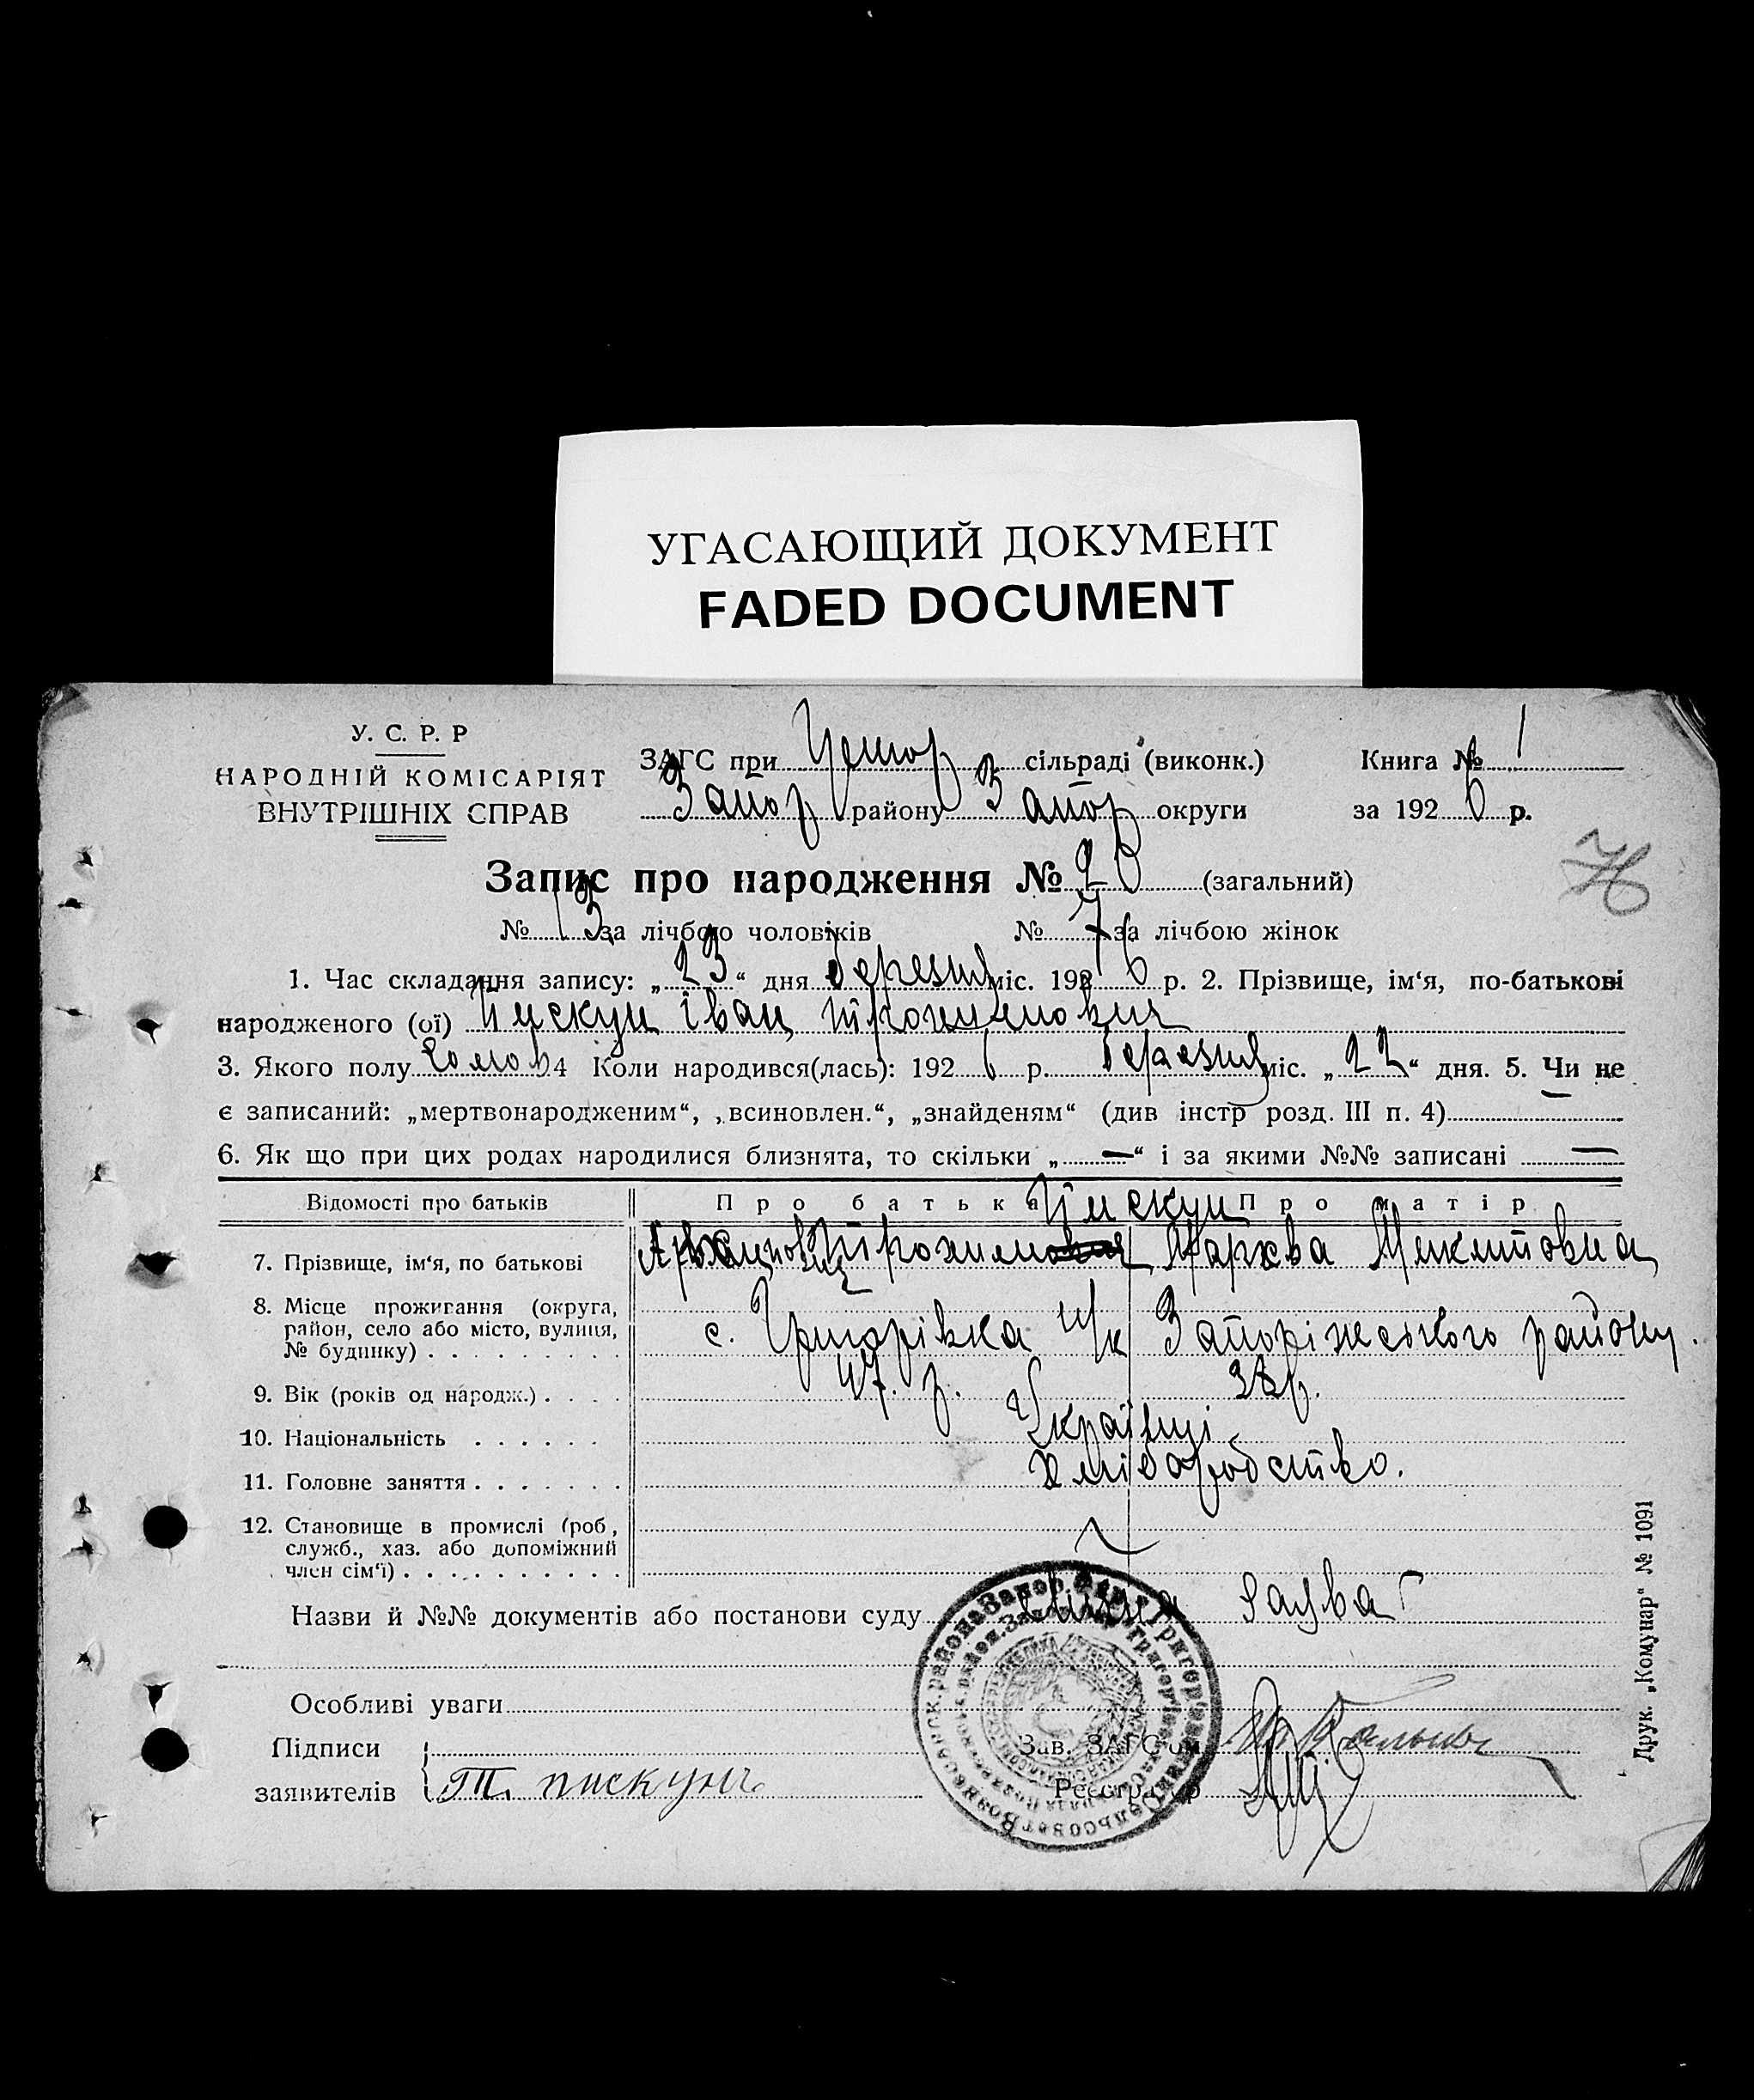 УГАСАЮЩИЙ ДОКУМЕНТ
FADED DOCUMENT
У. С. Р. Р
НАРОДНІЙ КОМІСАРІЯТ
ВНУТРІШНІХ СПРАВ
ЗАГС при сільраді (виконк.)
Запор району Запор округи
Книга № 1
за 1926 р.
Запис про народження № 20 (загальний)
76
№ 13 за лічбою чоловіків № 7 за лічбою жінок
1. Час складання запису: „23“ дня березня міс. 1926 р. 2. Прізвище, ім‘я, по-батькові
народженого (ої) Пискун Іван Трохимович
3. Якого полу чолов 4 Коли народився(лась): 1926 р. березня міс. „22“ дня. 5. Чи не
є записаний: „мертвонародженим“, „всиновлен.“, „знайденям“ (див інстр розд. III п. 4) —
6. Як що при цих родах народилися близнята, то скільки „—“ і за якими №№ записані —
Відомості про батьків Про батька Пискун Про матір
7. Прізвище, ім‘я, по батькові Архипович Трохим Мархва Микитовна
8. Місце прожигання (округа,
район, село або місто, вулиця,
№ будинку) с. Григорівка Запоріжського району.
9. Вік (років од народж.) 47. р. 38 р.
10. Національність Українці
11. Головне заняття Хліборобство.
12. Становище в промислі (роб,
служб., хаз. або допоміжний
член сім‘ї)
Назви й №№ документів або постанови суду заява
Особливі уваги
Підписи
заявителів Т. пискунъ
Зав. ЗАГС‘ом
Реєстратор
Друк. „Комунар“ № 1091